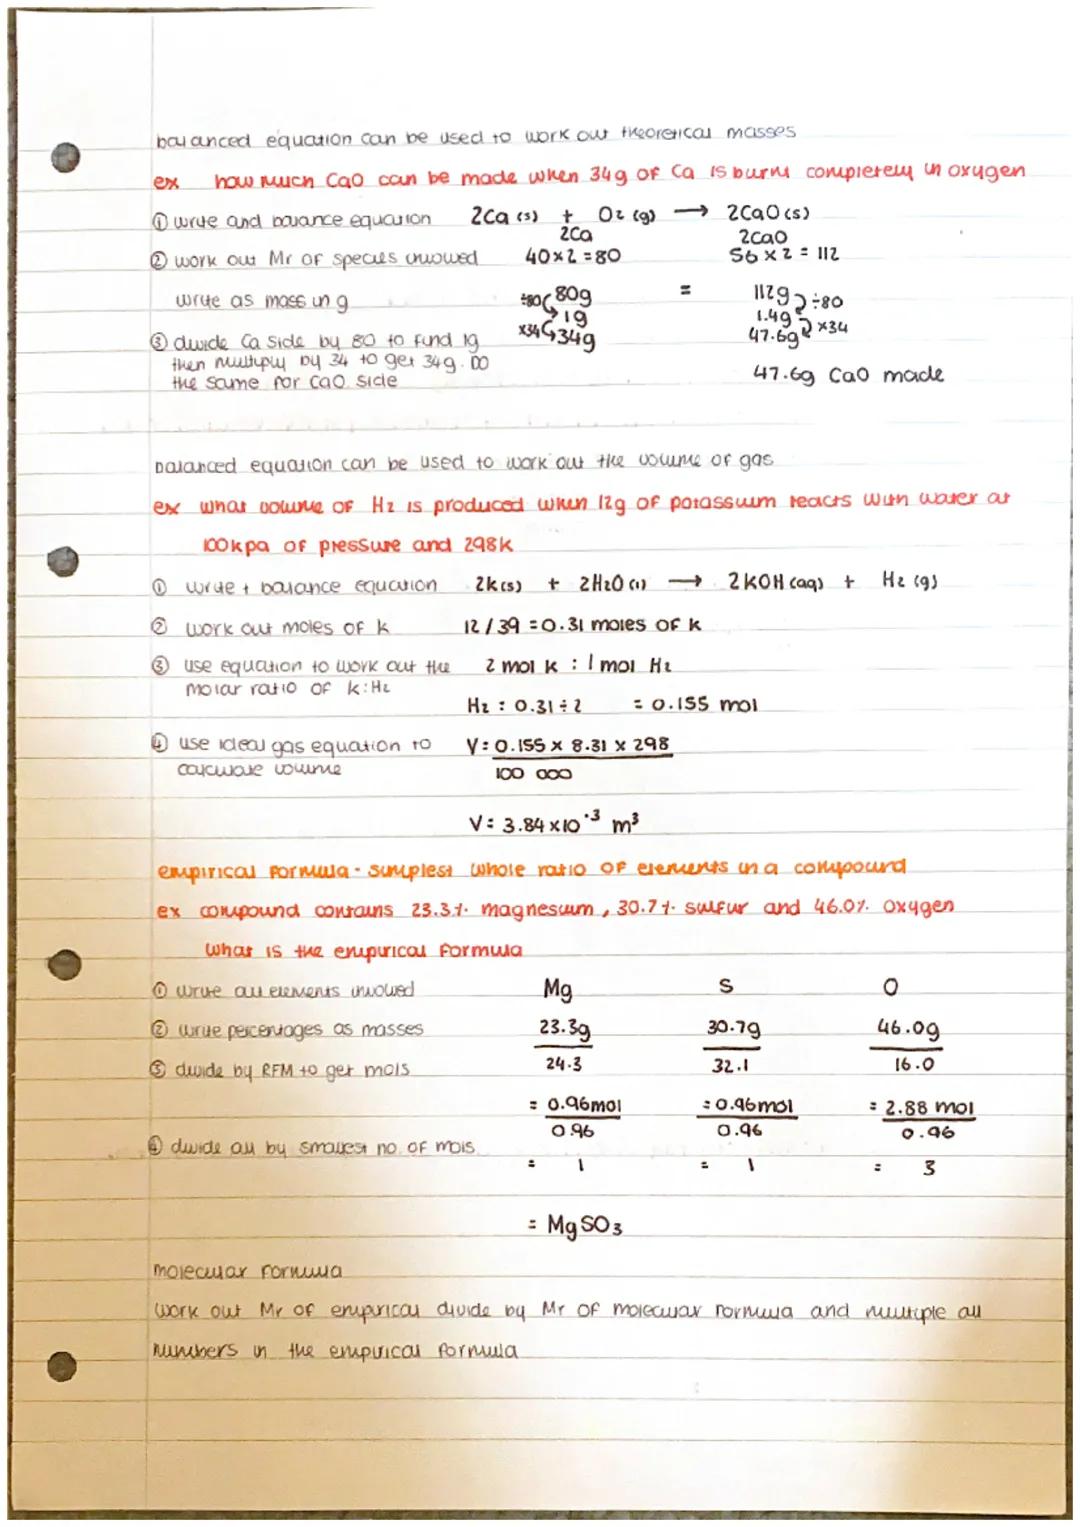 balanced equation can be used to work out theoretical masses
ex how much CaO can be made when 34g of Ca is burnt completely in oxygen
① write and balance equation 2Ca (s) + O2 (g) → 2CaO (s)
2Ca 2CaO
② work out Mr of species involved 40 x 2 = 80 56 x 2 = 112
write as mass in g ÷80 80g = 112g ÷80
1g 1.4g
x34 34g 47.6g x34
③ divide Ca side by 80 to find 1g
then multiply by 34 to get 34g. Do
the same for CaO side 47.6g CaO made
balanced equation can be used to work out the volume of gas
ex what volume of H2 is produced when 12g of potassium reacts with water at
100kpa of pressure and 298k
① write + balance equation 2k(s) + 2H2O (l) → 2KOH (aq) + H2 (g)
② work out moles of k 12/39 = 0.31 moles of k
③ use equation to work out the 2 mol k : 1 mol H2
molar ratio of k:H2
H2 : 0.31 ÷ 2 = 0.155 mol
④ use ideal gas equation to V = 0.155 x 8.31 x 298
calculate volume 100 000
V = 3.84 x 10^-3 m³
empirical formula - simplest whole ratio of elements in a compound
ex compound contains 23.3% magnesium, 30.7% sulfur and 46.0% oxygen
what is the empirical formula
① write all elements involved Mg S O
② write percentages as masses 23.3g 30.7g 46.0g
③ divide by RFM to get mols 24.3 32.1 16.0
= 0.96mol = 0.96mol = 2.88 mol
0.96 0.96 0.96
④ divide all by smallest no. of mols
= 1 = 1 = 3
= MgSO3
molecular formula
work out Mr of empirical divide by Mr of molecular formula and multiple all
numbers in the empirical formula